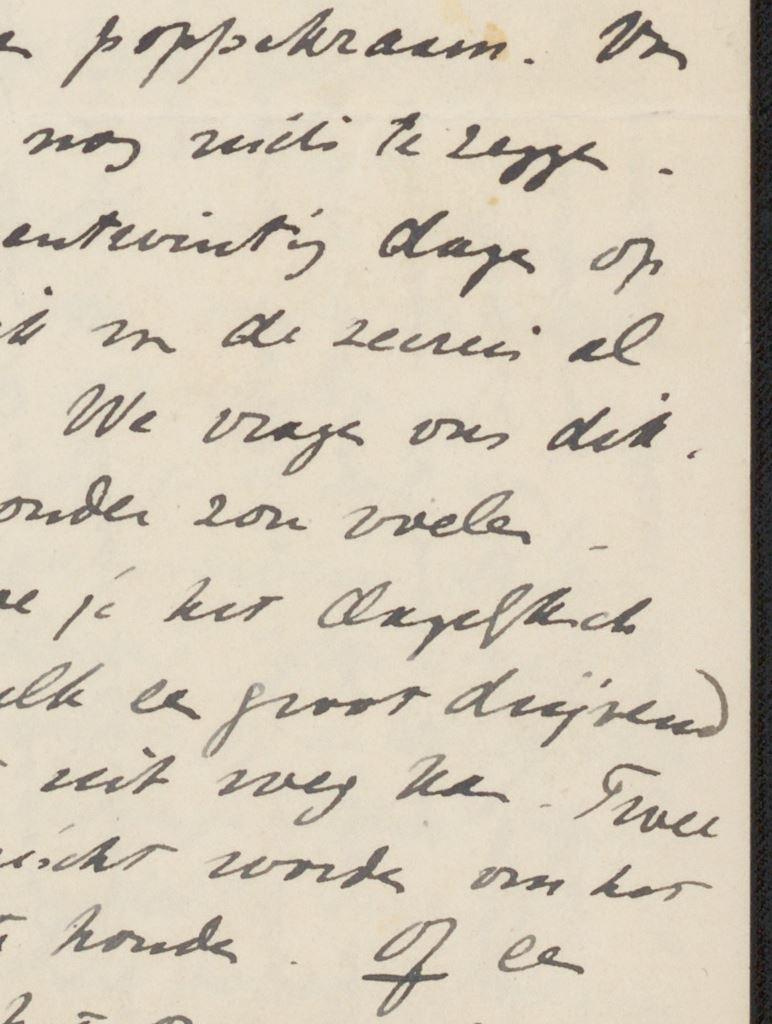 poppekraam. Van
nog niets te zeggen.
entwintig dagen op
ik in de zeereis al
We vragen ons dik.
onder zon voelen.
je het dagelijksch
elk een groot drijvend
niet weg kan. Twee
worden om het
houden. Of een